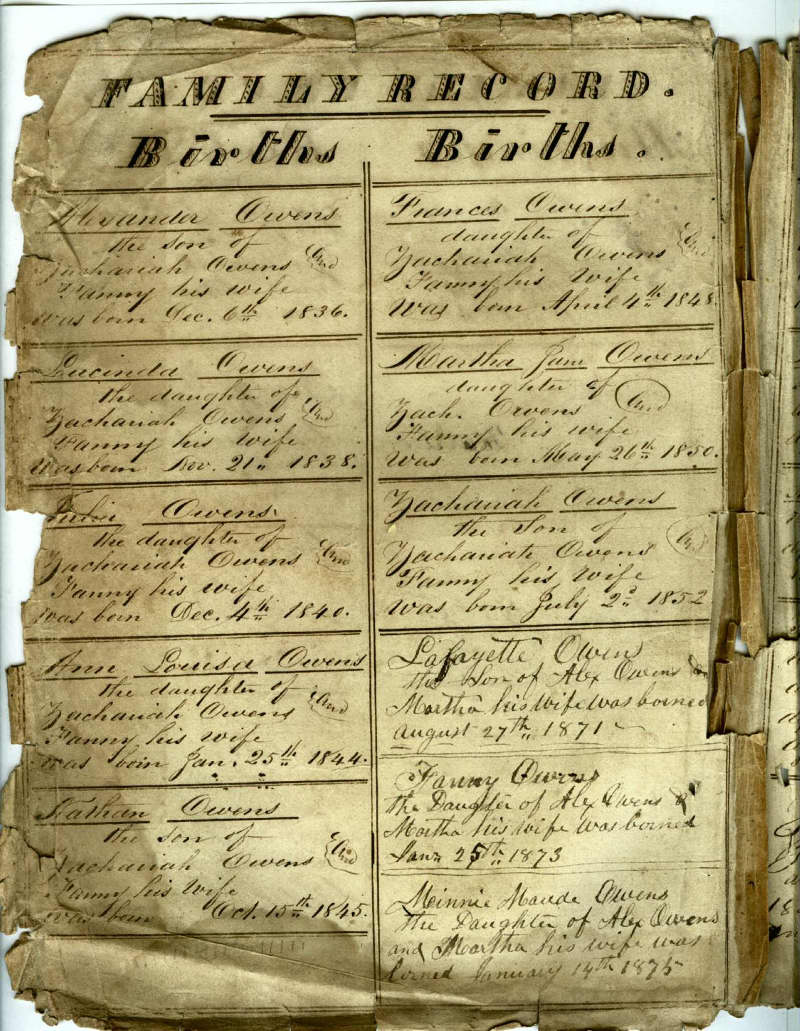 FAMILY RECORD.
Births
Alexander Owens
the son of
Zachariah Owens and
Fanny his wife
was born Dec. 6th 1836.
Lucinda Owens
the daughter of
Zachariah Owens and
Fanny his wife
Was born Nov. 21" 1838.
Owens
the daughter of
Zachariah Owens and
Fanny his wife
was born Dec. 4th 1840.
Ann Louisa Owens
the daughter of
Zachariah Owens and
Fanny his wife
was born Jan. 25th 1844.
Nathan Owens
the son of
Zachariah Owens and
Fanny his wife
was born Oct. 15th 1845.
Births.
Frances Owens
daughter of
Zachariah Owens and
Fanny his wife
Was born April 4th 1848.
Martha Jane Owens
daughter of
Zach. Owens and
Fanny his wife
was born May 26th 1850.
Zachariah Owens
the son of
Zachariah Owens and
Fanny his wife
was born July 2d 1852
Lafayette Owens
the Son of Alex Owens &
Martha his wife was borned
august 27th 1871
Fanny Owens
the Daughter of Alex Owens &
Martha his wife was borned
Jan. 25th 1873
Minnie Maude Owens
the Daughter of Alex Owens
and Martha his wife was
borned January 14th 1875